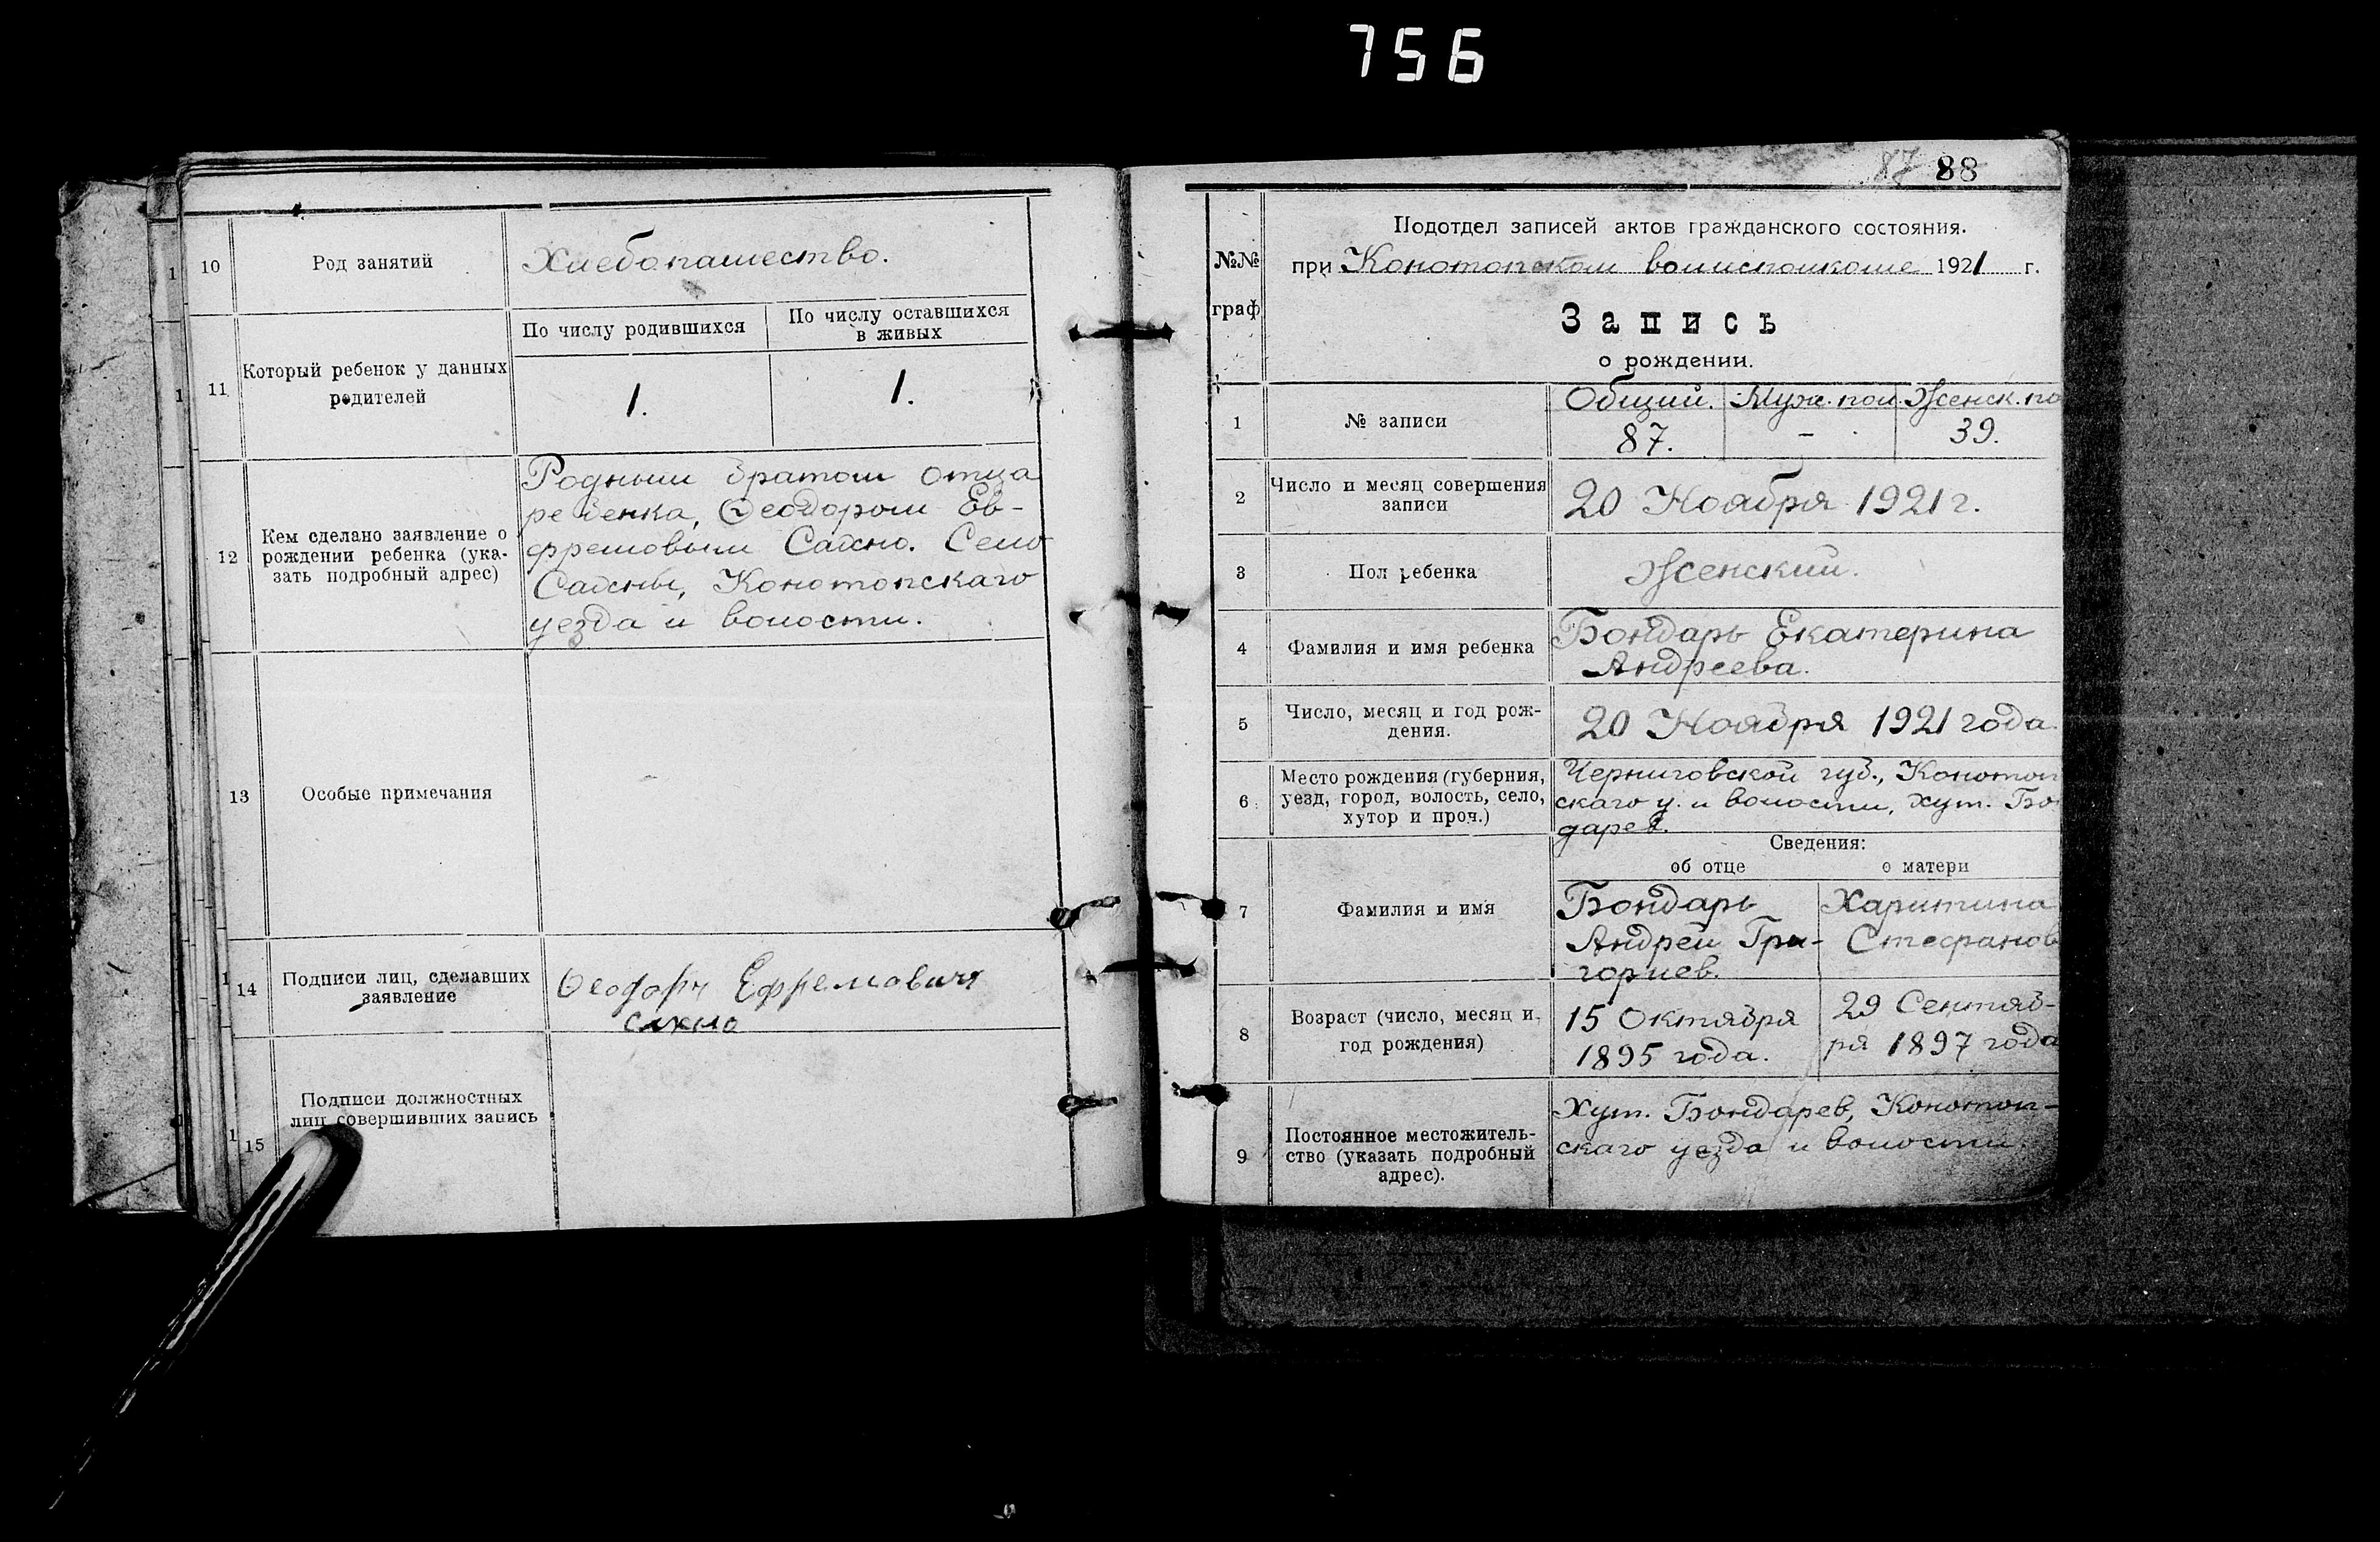 756
10 Род занятий Хлебопашество.
По числу родившихся По числу оставшихся
в живых
11 Который ребенок у данных
родителей
1. 1.
Родным братом отца
ребенка, Ѳеодором Ев-
12 Кем сделано заявление о
рождении ребенка (ука-
зать подробный адрес)
фремовым Сахно. Село
Сахны, Конотопскаго
уезда и волости.
13 Особые примечания
14 Подписи лиц, сделавших
заявление
Ѳеодоръ Ефремович
Сахно
15 Подписи должностных
лиц совершивших запись
87 88
Подотдел записей актов гражданского состояния.
№№
граф
при Конотопском волисполкоме 1921 г.
Запись
о рождении.
1 № записи
Общий. Муж. пол. Женск. по
87. - 39.
2 Число и месяц совершения
записи
20 Ноября 1921 г.
3 Пол ребенка Женский.
4 Фамилия и имя ребенка
Бондарь Екатерина
Андреева.
5 Число, месяц и год рож-
дения.
20 Ноября 1921 года.
6 Место рождения (губерния,
уезд, город, волость, село,
хутор и проч.)
Черниговской губ., Конотоп
скаго у. и волости, хут. Бо
дарев.
Сведения:
об отце о матери
7 Фамилия и имя
Бондарь
Андрей Гри-
гориев.
Харитина
Стефанов
8 Возраст (число, месяц и
год рождения)
15 Октября
1895 года.
29 Сентяб-
ря 1897 года
9 Постоянное местожитель-
ство (указать подробный
адрес).
Хут. Бондарев, Конотоп-
скаго уезда и волости.